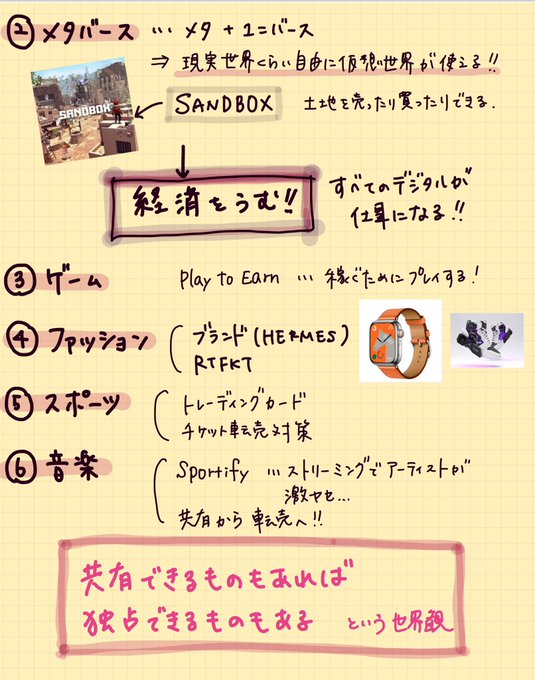 ② メタバース … メタ + ユニバース
⇒ 現実世界くらい自由に仮想世界が使える!!
SANDBOX
SANDBOX 土地を売ったり買ったりできる.
経済をうむ!!
すべてのデジタルが
仕事になる!!
③ ゲーム Play to Earn … 稼ぐためにプレイする!
④ ファッション ブランド(HERMES)
RTFKT
⑤ スポーツ トレーディングカード
チケット転売対策
⑥ 音楽 Sportify … ストリーミングでアーティストが
激ヤセ…
共有から転売へ!!
共有できるものもあれば
独占できるものもある という世界観